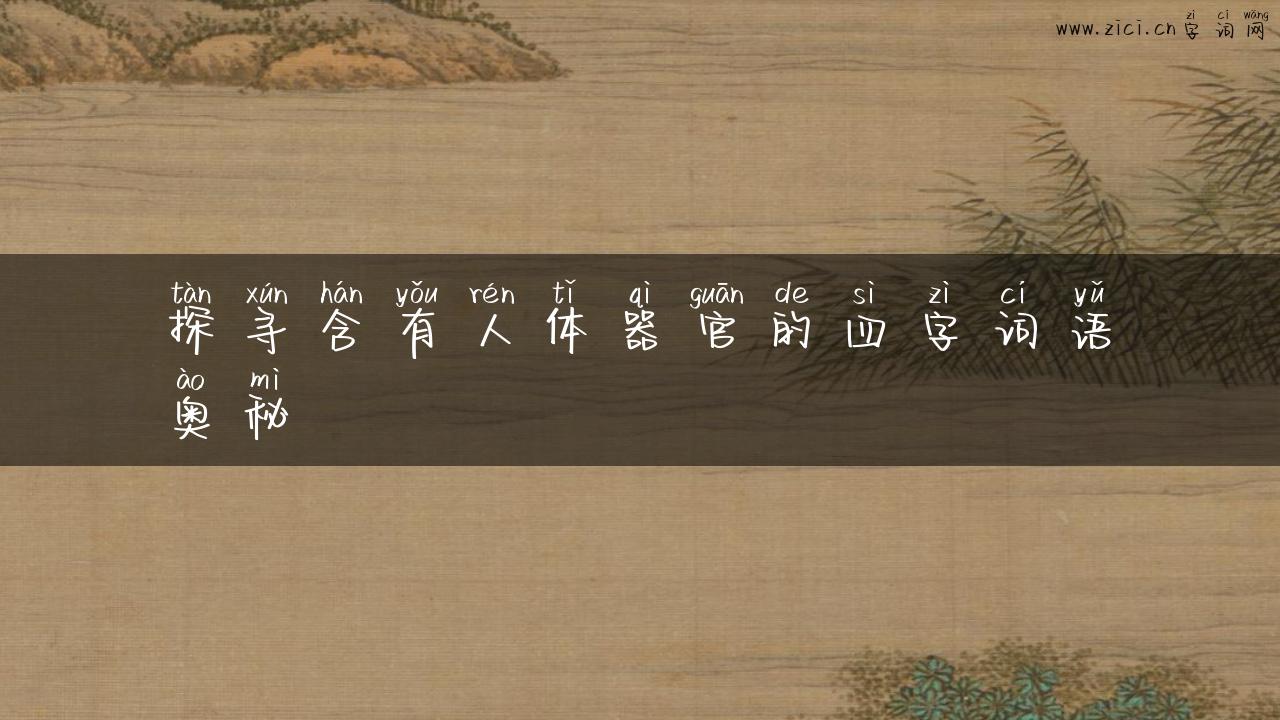 zì cí wǎng
www.zici.cn 字词网
tàn xún hán yǒu rén tǐ qì guān de sì zì cí yǔ
探寻含有人体器官的四字词语
ào mì
奥秘